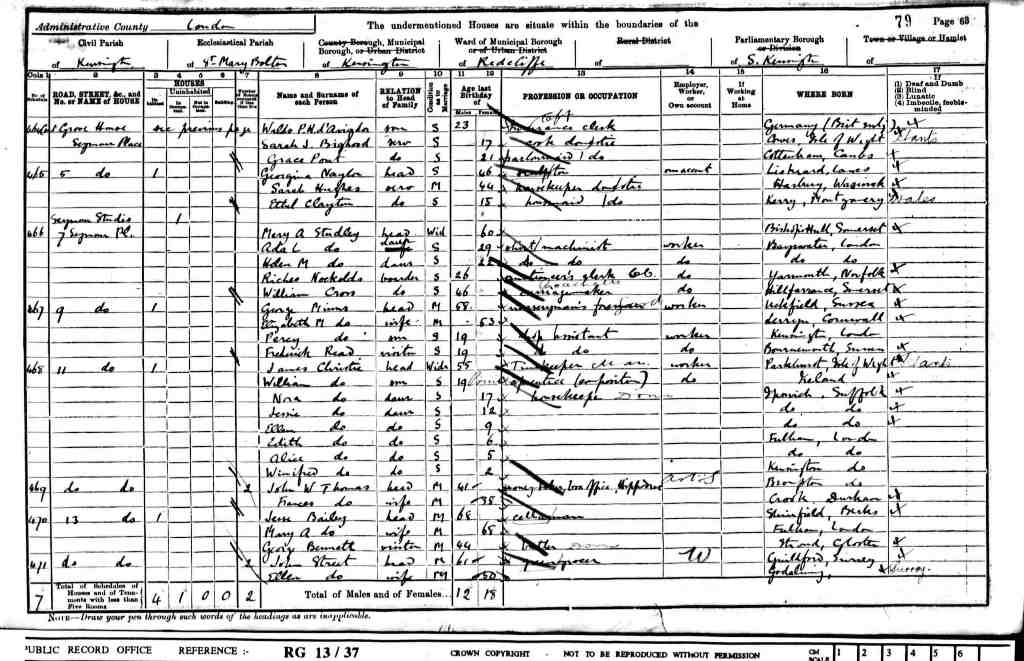 Administrative County London The undermentioned Houses are situate within the boundaries of the 79 Page 63
Civil Parish Ecclesiastical Parish County Borough, Municipal Borough, or Urban District Ward of Municipal Borough or of Urban District Rural District Parliamentary Borough or Division Town or Village or Hamlet
of Kensington of St Mary Bolton of Kensington of Redcliffe of of S. Kensingtn of
Cols 1 2 3 4 5 6 7 8 9 10 11 12 13 14 15 16 17
ROAD, STREET, &c., and No. or NAME of HOUSE HOUSES Inhabited Uninhabited In Occupation Not in Occupation Building Name and Surname of each Person RELATION to Head of Family Condition as to Marriage Age last Birthday of Males Females PROFESSION OR OCCUPATION Employer, Worker, or Own account If Working at Home WHERE BORN (1) Deaf and Dumb (2) Blind (3) Lunatic (4) Imbecile, feeble-minded
Grove House see previous page Waldo P.H. d'Avigdor son S 23 clerk Germany (Brit subj)
Seymour Place Sarah J. serv S 17 cook domestic Cowes, Isle of Wight Hants
Grace Pont do S 21 parlourmaid do Cottenham, Cambs
465 5 do 1 Georgina Naylor head S 46 sculptor own account Liskeard, Lancs
Sarah Hughes serv M 44 housekeeper domestic Harbury, Warwick
Ethel Clayton do S 15 housemaid do Kerry, Montgomery Wales
Seymour Studios 1
466 7 Seymour Pl. Mary A Studley head Wid 60 Bishop's Hull, Somerset
Ada L do daur S 29 machinist worker Bayswater, London
Helen M do daur S 22 do do do do do
Riches Nockolds boarder S 26 auctioneer's clerk do Yarmouth, Norfolk
William Cross do S 46 carriage maker do Hillfarrance, Somerset
467 9 do 1 George Minns head M 58 worker Uckfield, Sussex
Elizabeth M do wife M 53 Cornwall
Percy do son S 19 shop assistant worker Kensington, London
Frederick Read visitor S 19 do do do Bournemouth
468 11 do 1 James Christie head Widr 55 Timekeeper worker Parkhurst, Isle of Wight Hants
William do son S 19 apprentice (compositor) do Ireland
Nora do daur S 17 housekeeper Dom Ipswich, Suffolk
Jessie do daur S 12 do do
Ellen do do S 9 do do
Edith do do S 6 Fulham, London
Alice do do S 5 do do
Winifred do do S 2 Kensington do
469 do do 2 John W Thomas head M 41 money taker, box office, Hippodrome Brompton do
Frances do wife M 38 Crook, Durham
470 13 do 1 Jesse Bailey head M 68 Shinfield, Berks
Mary A do wife M 68 Fulham, London
George Bennett visitor M 44 butler Dom Stroud, Gloster
471 do do 2 John Street head M 61 greengrocer W Guildford, Surrey
Ellen do wife M 50 Godalming, Surrey
7 Total of Schedules of Houses and of Tenements with less than Five Rooms 4 1 0 0 2 Total of Males and of Females... 12 18
NOTE—Draw your pen through such words of the headings as are inapplicable.
PUBLIC RECORD OFFICE REFERENCE :- RG 13 / 37 CROWN COPYRIGHT - NOT TO BE REPRODUCED WITHOUT PERMISSION CM SCALE 1 2 3 4 5 6